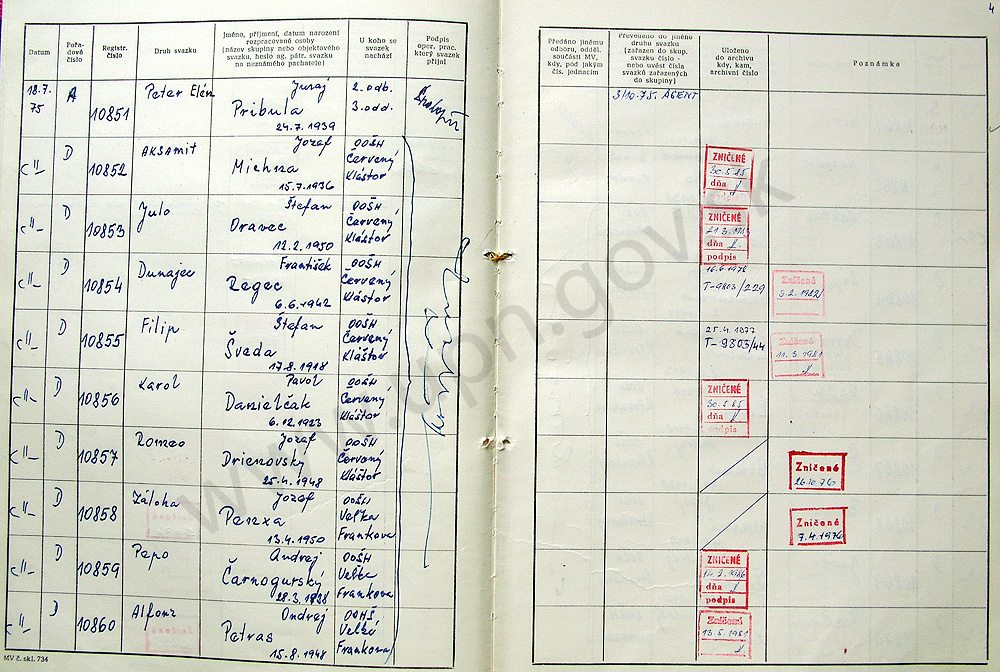 4
Datum
Pořa-
dové
číslo
Registr.
číslo
Druh svazku
Jméno, příjmení, datum narození
rozpracované osoby
(název skupiny nebo objektového
svazku, heslo ag. pátr. svazku
na neznámého pachatele)
U koho se
svazek
nachází
Podpis
oper. prac.
který svazek
přijal
Předáno jinému
odboru, odděl.
součásti MV,
kdy, pod jakým
čís. jednacím
Převedeno do jiného
druhu svazku
(zařazen do skup.
svazku číslo -
nebo uvést čísla
svazků zařazených
do skupiny)
Uloženo
do archivu
kdy, kam,
archivní číslo
Poznámka
18.7.
75
A
10851
Peter Elén
Juraj
Pribula
24.7.1939
2. odb.
3. odd.
3/10-75. AGENT
-"-
D
10852
AKSAMIT
Jozef
Michna
15.7.1936
OOŠH
Červený
Kláštor
ZNIČENÉ
30.5.85
dňa
-"-
D
10853
Julo
Štefan
Oravec
12.2.1950
OOŠH
Červený
Kláštor
ZNIČENÉ
dňa
podpis
-"-
D
10854
Dunajec
František
Regec
6.6.1942
OOŠH
Červený
Kláštor
16.6.1978
T-9803/229
Zničené
5.2.1982
-"-
D
10855
Filip
Štefan
Šveda
17.8.1918
OOŠH
Červený
Kláštor
25.4.1977
T-9803/44
Zničené
11.3.1981
-"-
D
10856
Karol
Pavol
Danielčak
6.12.1923
OOŠH
Červený
Kláštor
ZNIČENÉ
30.5.85
dňa
podpis
-"-
D
10857
Romeo
Jozef
Drienovský
25.4.1948
OOŠH
Červený
Kláštor
Zničené
26.10.76
-"-
D
10858
Záloha
Jozef
Penxa
13.4.1950
OOŠH
Veľka
Frankova
Zničené
7.4.1976
-"-
D
10859
Pepo
Andrej
Čarnogurský
28.3.1938
OOŠH
Veľka
Frankova
ZNIČENÉ
14.2.1986
dňa
podpis
-"-
D
10860
Alfonz
Ondrej
Petras
15.8.1948
OOHŠ
Veľká
Frankova
Zničení
13.5.1981
MV č. skl. 734
www.upn.gov.sk